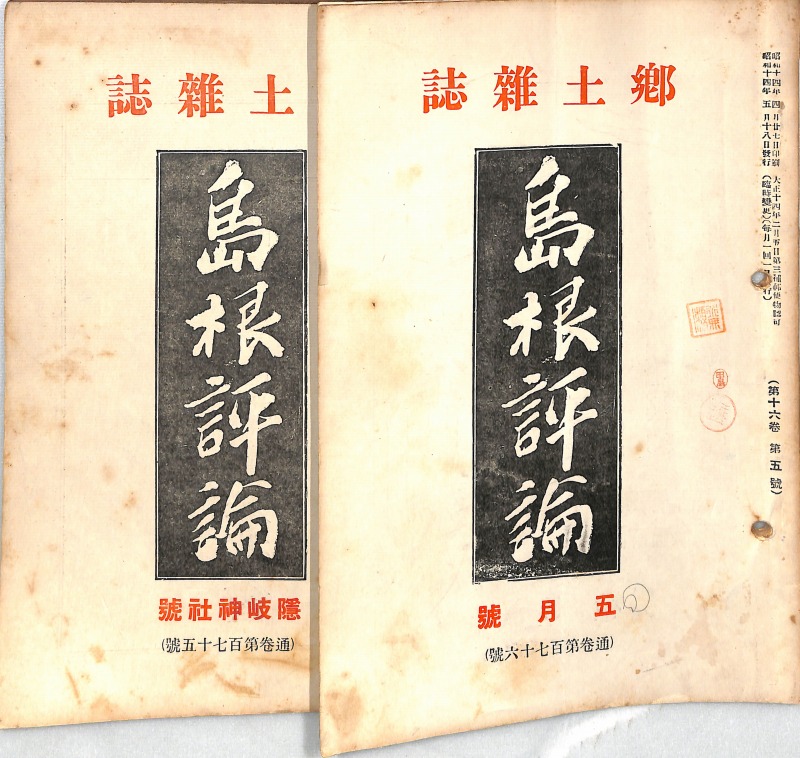 昭和十四年 四月廿七日印刷 大正十四年二月五日第三種郵便物認可
昭和十四年 五月十八日發行 (臨時變更)(每月一回一 行)
(第十六卷 第五號)
鄕土雜誌
島根評論
五月號
(通卷第百七十六號)
土雜誌
島根評論
隱岐神社號
(通卷第百七十五號)